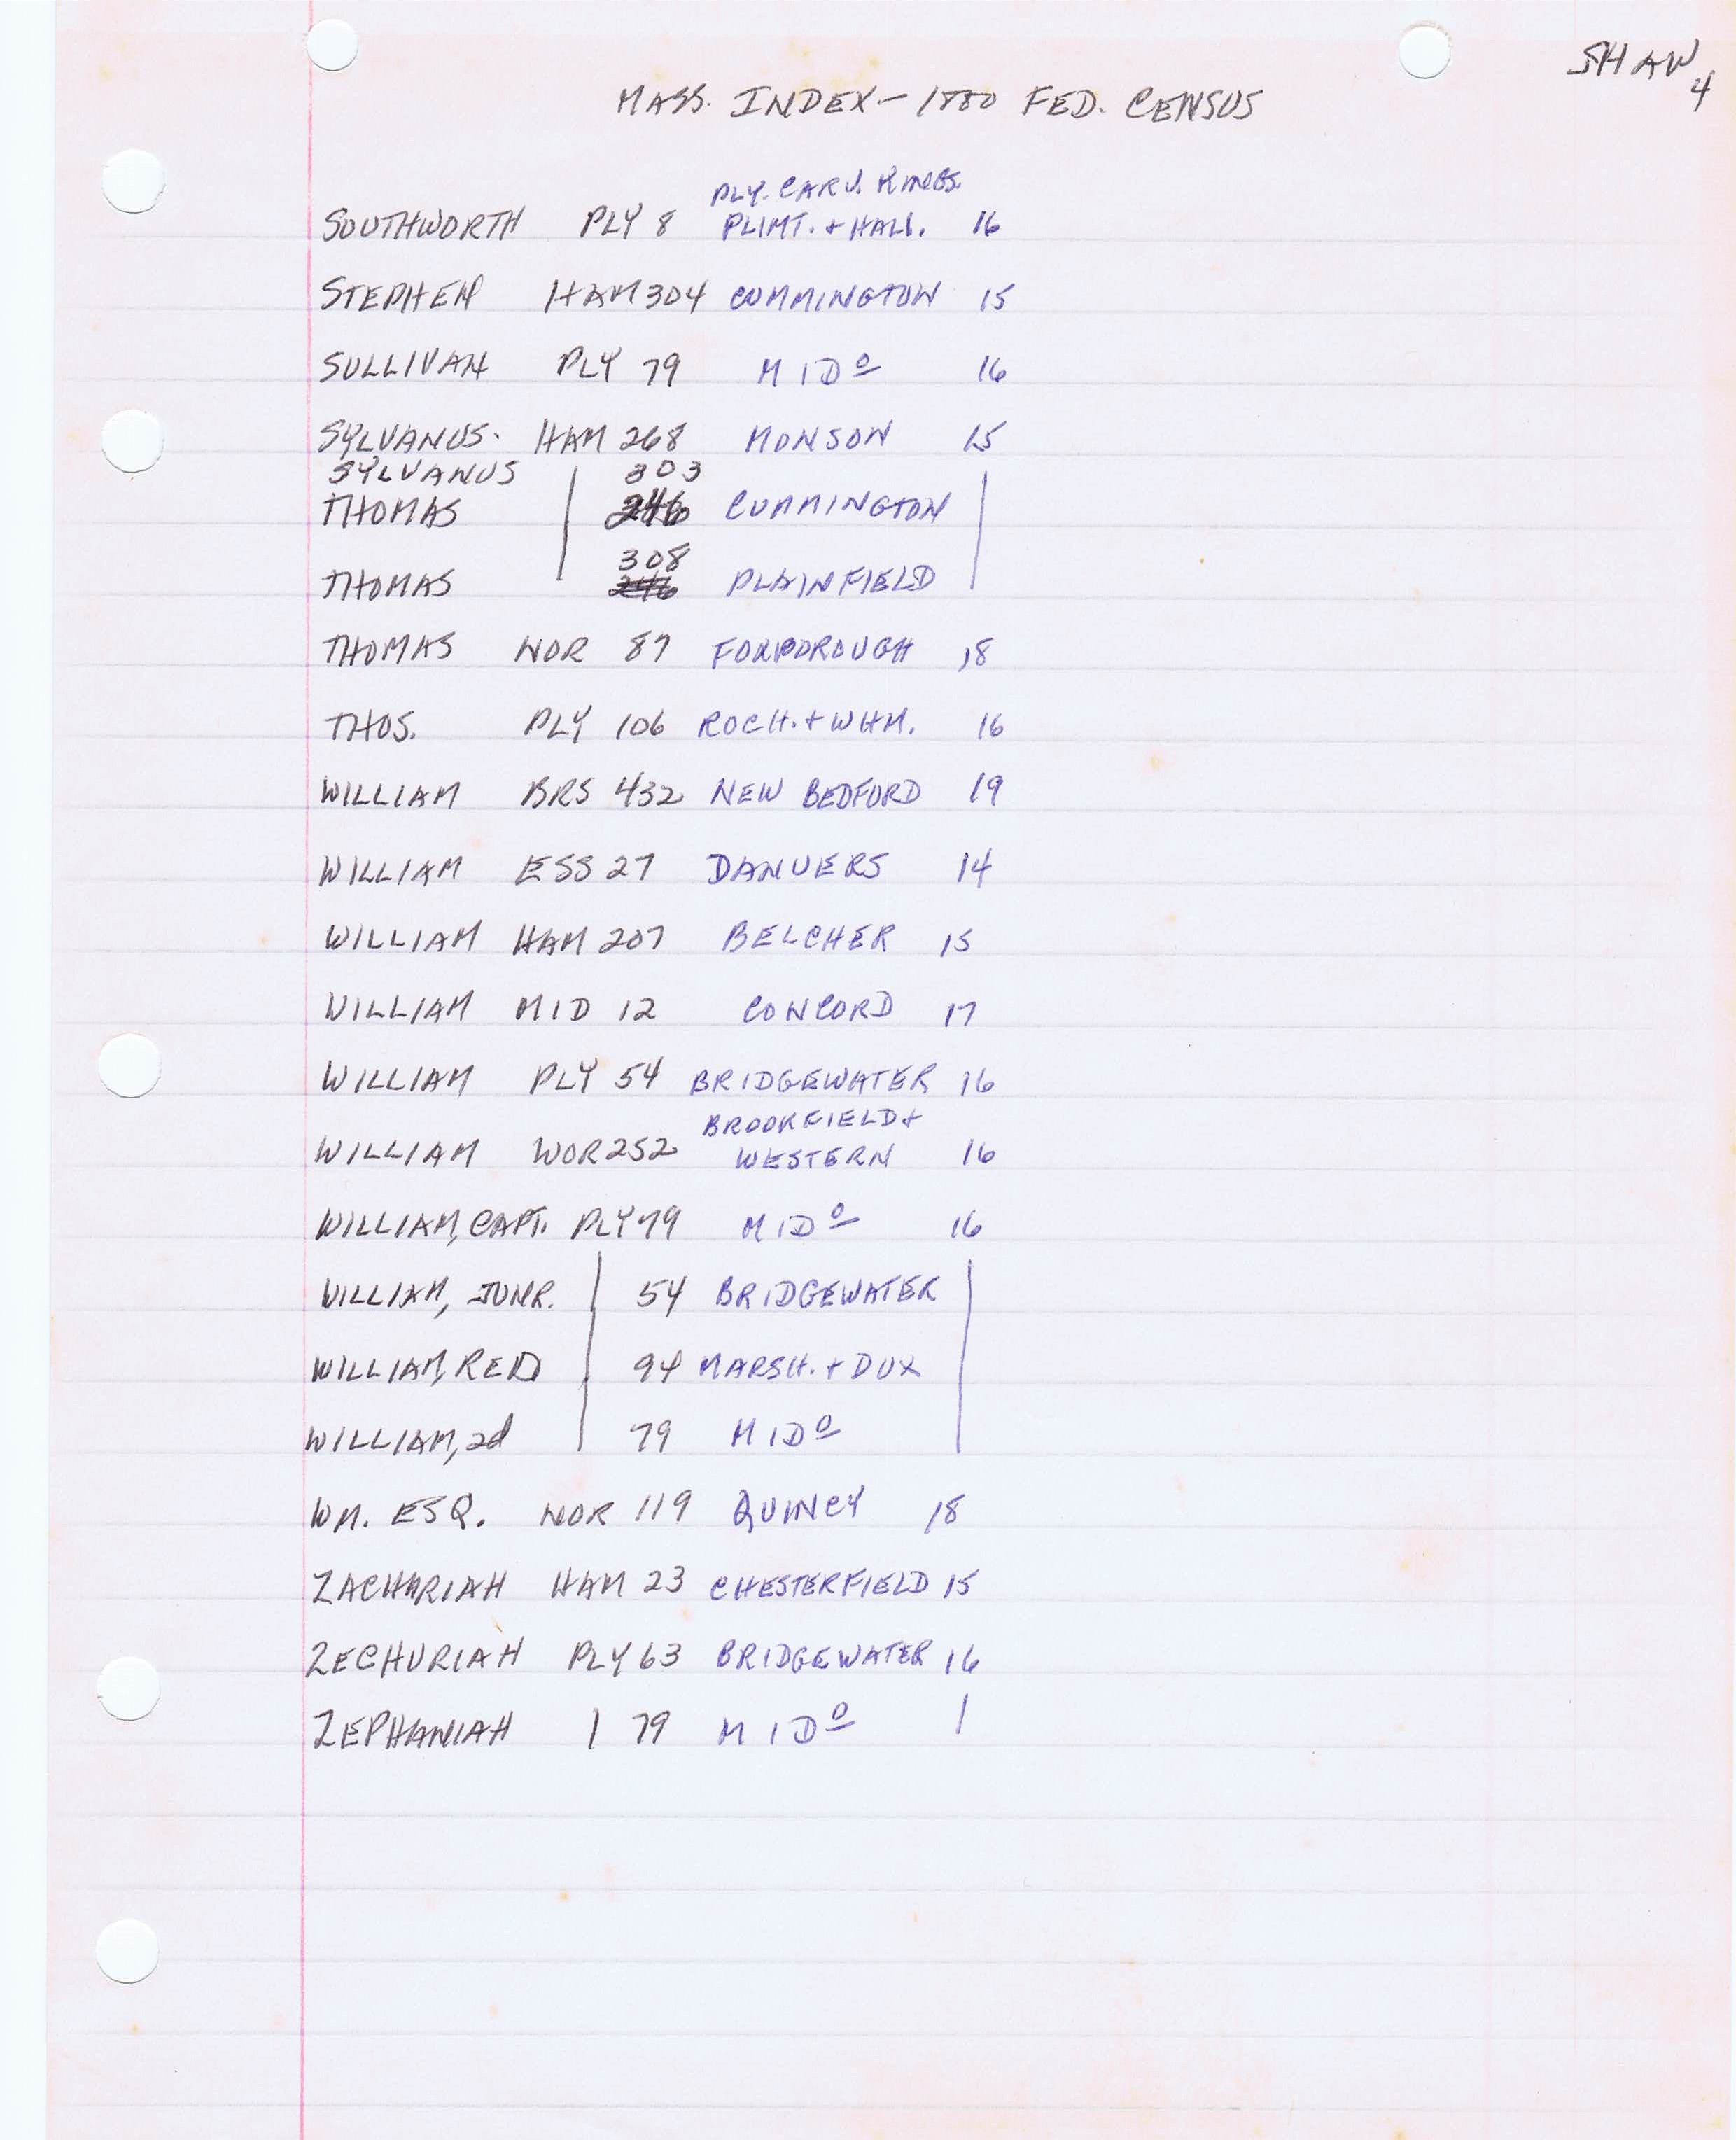 SHAW
4
MASS. INDEX - 1880 FED. CENSUS
PLY. CARV. KINGS.
SOUTHWORTH PLY 8 PLIMT. + HALI. 16
STEPHEN HAM 304 CUMMINGTON 15
SULLIVAN PLY 79 MIDº 16
SYLVANUS. HAM 268 MONSON 15
SYLVANUS | 303 |
THOMAS | 246 CUMMINGTON |
308
THOMAS 246 PLAINFIELD
THOMAS NOR 87 FOXBOROUGH 18
THOS. PLY 106 ROCH. + WHM. 16
WILLIAM BRS 432 NEW BEDFORD 19
WILLIAM ESS 27 DANVERS 14
WILLIAM HAM 207 BELCHER 15
WILLIAM MID 12 CONCORD 17
WILLIAM PLY 54 BRIDGEWATER 16
BROOKFIELD +
WILLIAM WOR 252 WESTERN 16
WILLIAM, CAPT. PLY 79 MIDº 16
WILLIAM, JUNR. | 54 BRIDGEWATER |
WILLIAM, RED | 94 MARSH. + DUX |
WILLIAM, 2d | 79 MIDº |
WM. ESQ. NOR 119 QUINCY 18
ZACHARIAH HAM 23 CHESTERFIELD 15
ZECHURIAH PLY 63 BRIDGEWATER 16
ZEPHANIAH | 79 MIDº |